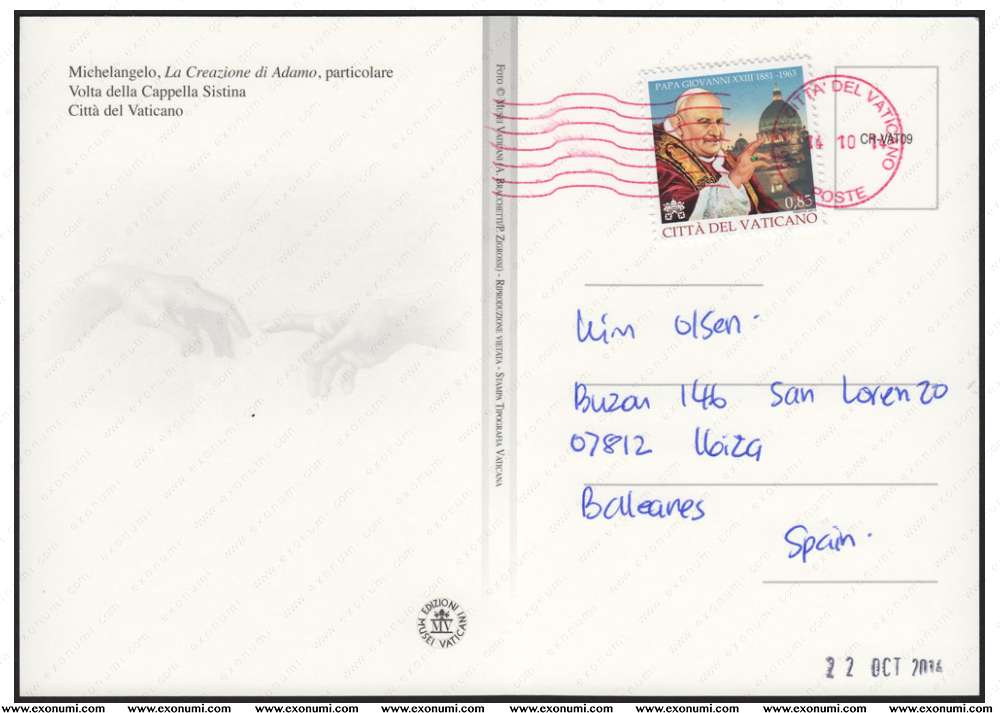 Michelangelo, La Creazione di Adamo, particolare
Volta della Cappella Sistina
Città del Vaticano
FOTO © MUSEI VATICANI (A. BRACCHETTI/P. ZIGROSSI) - RIPRODUZIONE VIETATA - STAMPA TIPOGRAFIA VATICANA
PAPA GIOVANNI XXIII 1881-1963
0,85
CITTÀ DEL VATICANO
CITTA' DEL VATICANO
14 10 14
POSTE
CR-VAT09
Kim Olsen.
Buzon 146 San Lorenzo
07812 Ibiza
Baleares
Spain.
EDIZIONI
MV
MUSEI VATICANI
22 OCT 2014
www.exonumi.com www.exonumi.com www.exonumi.com www.exonumi.com www.exonumi.com www.exonumi.com www.exonumi.com www.exonumi.com